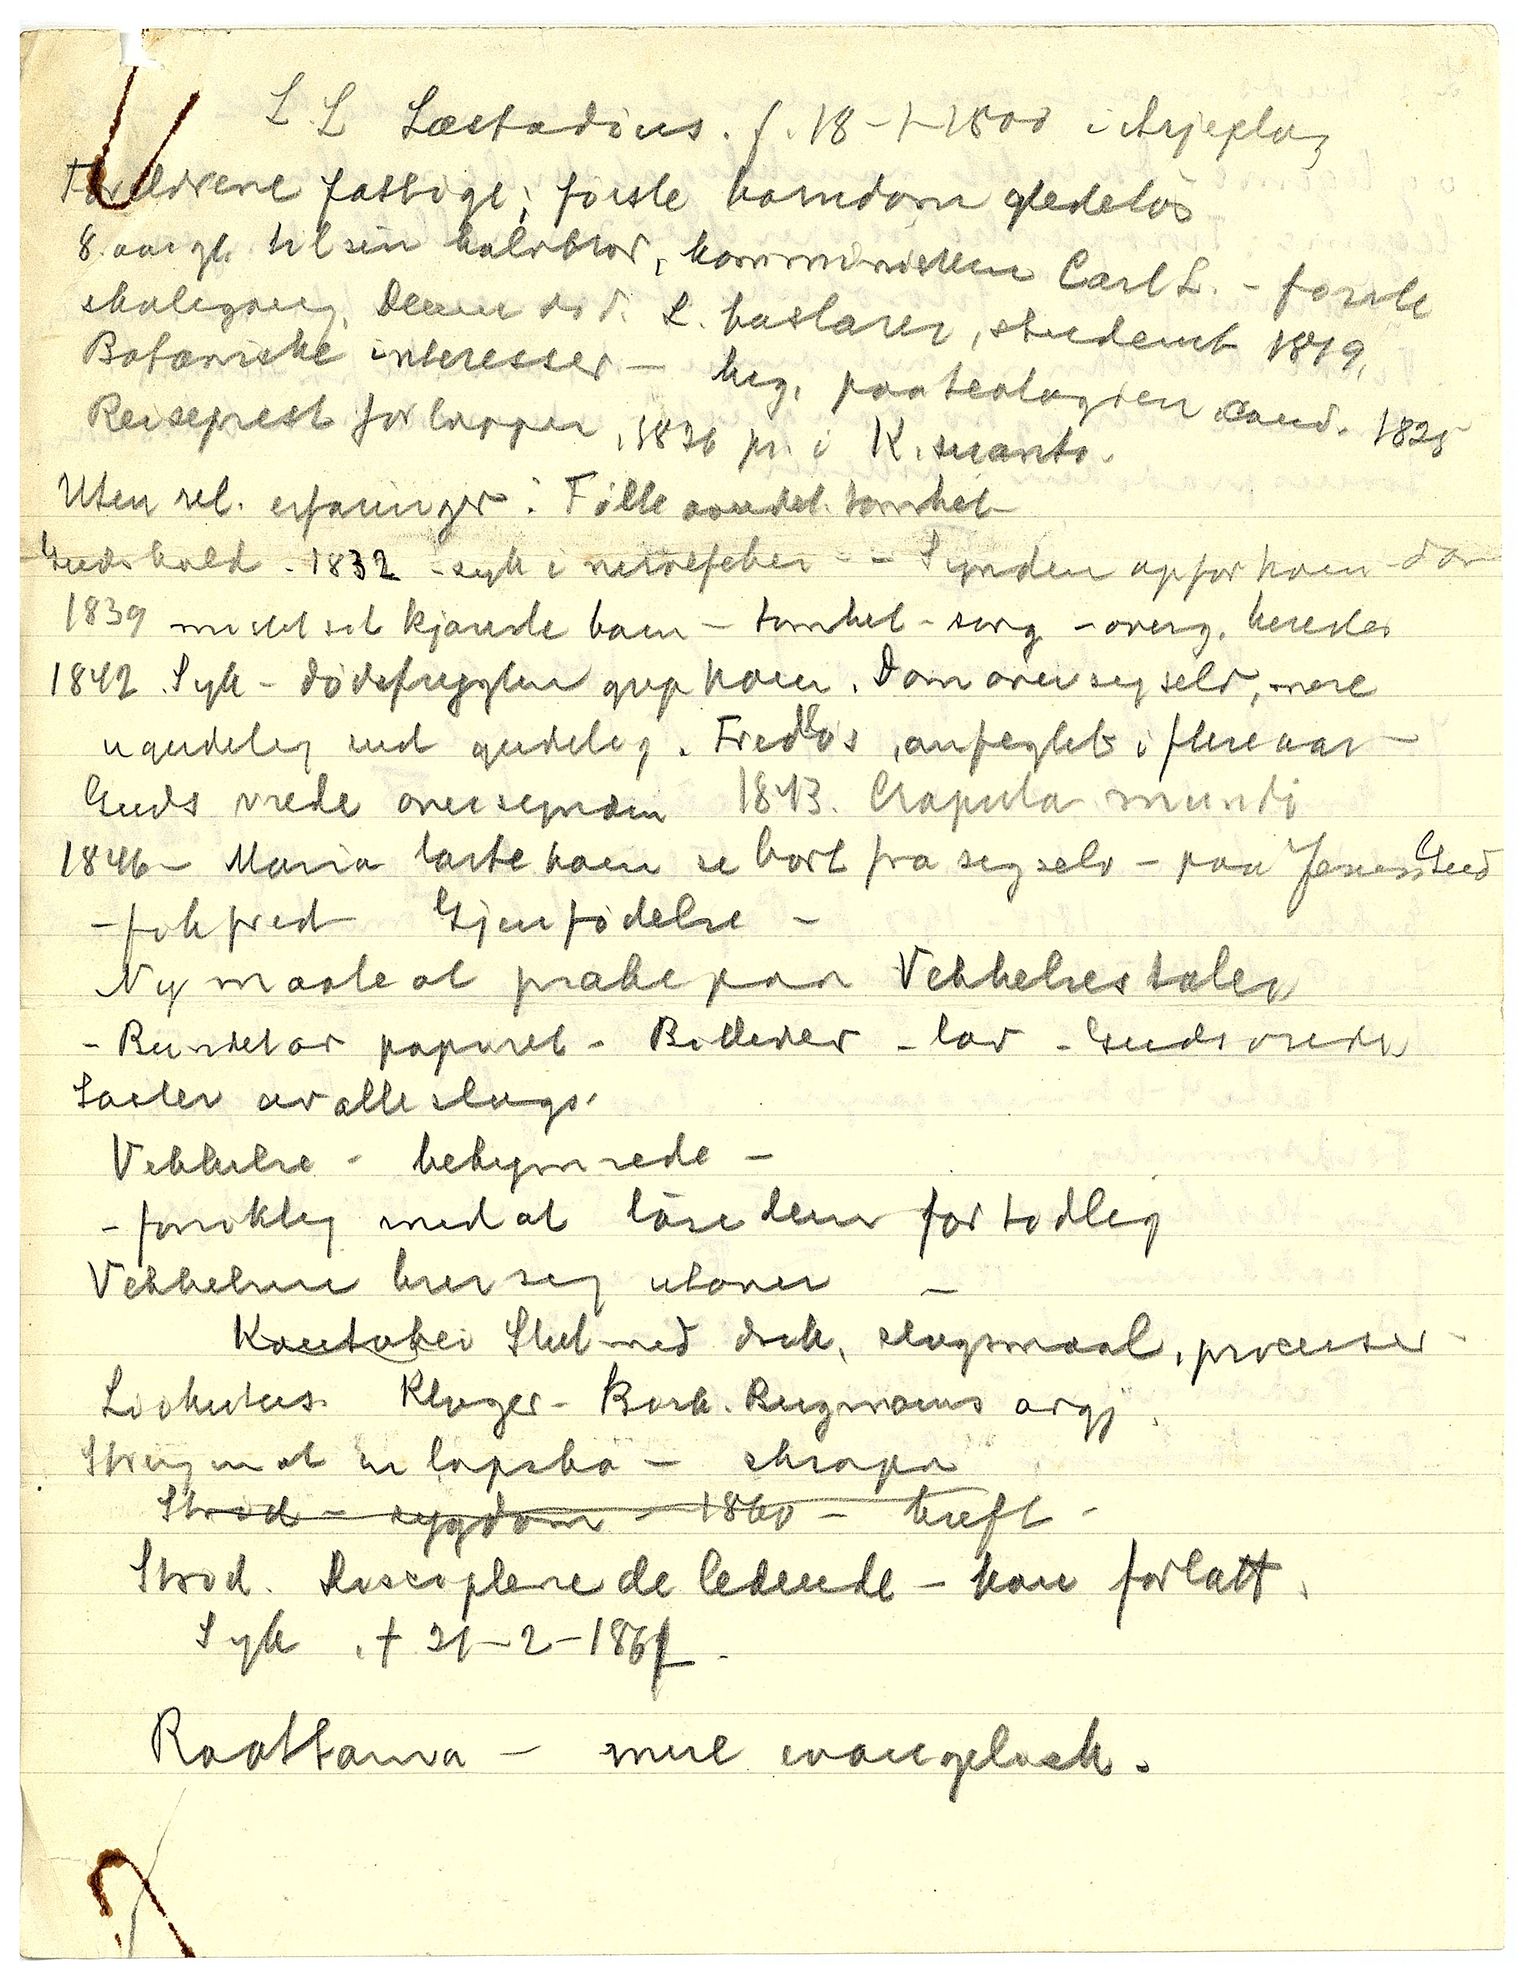 L. L Læstadius. f. 18-1-1800 i Arjeplog
Foreldrene fattige; första barndom gledeløs
8. aar gl. til sin halvbror, komministeren Carl L. - første
skolegang. Denne død. L. kastarer, student 1819,
Botaniske interesser - beg. paa teologien cand. 1825
Reiseprest for lapper, 1826 pr. i K. suanto.
Uten rel. erfaringer: Følte aandel. tomhet
Gudsbild - 1832 - syk i nervefeber - - Synden op for ham - dom
1839 mistet sit kjæreste barn - tomhet - sorg - overg. bereder
1842. Syk - dødsfrygten grep ham. Dom over seg selv, mere
ugudelig end gudelig. Fredløs, anfegtet i flere aar -
Guds vrede over synden 1843. Crapula mundi
1846 - Maria lærte ham se bort fra seg selv - paa Jesus, Gud
- fik fred Gjenfødelse -
Ny maate at preke paa Vekkelsestaler
- Rundet av papiret - Billeder - lov - Guds vrede
Laster av alle slags.
Vekkelse - bekymrede -
- forsiktig med at løse dem for tidlig
Vekkelsen brer seg utover -
Kautokei Slut med drik, slagsmaal, processer -
Klager - Bork. Rugmans
Streng mot en - skrapa
Strid - sygdom - 1860 -
Strid. Disciplene de ledende - han forlatt.
Syk. † 21-2-1861.
Raattama - mere evangelisk.